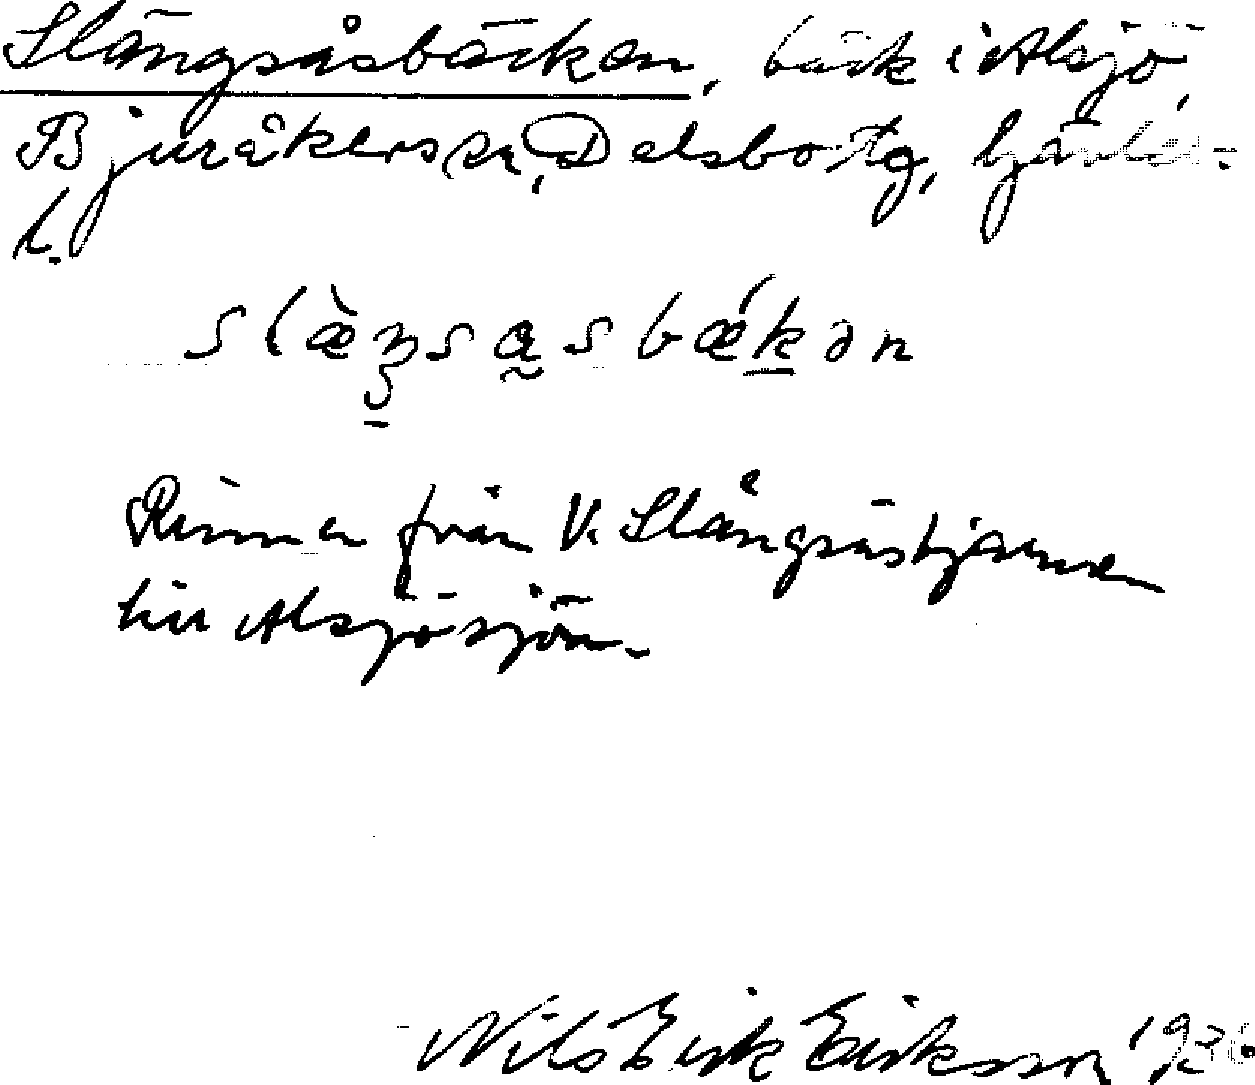 Slängsåsbäcken, bäck i Alsjö,
Bjuråkers sn, Delsbo tg, Gävleb.
l.
slæ̀ŋsa̰sbǽk̠ən
Rinner från V. Slängsåstjärnen
till Alsjösjön.
Nils Erik Eriksson 1936